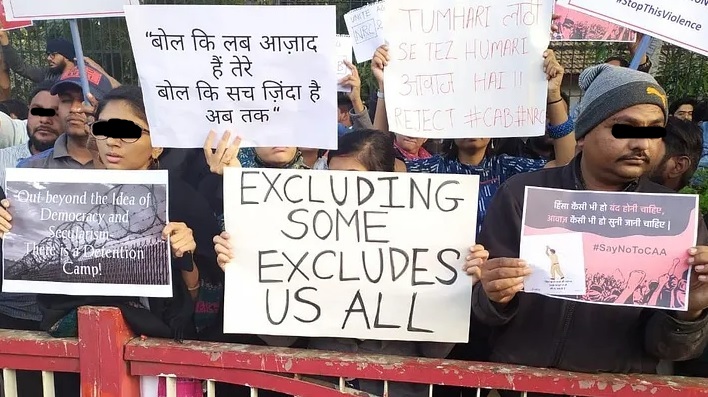 #StopThisViolence
"बोल कि लब आज़ाद
हैं तेरे
बोल कि सच ज़िंदा है
अब तक"
UNITE
TUMHARI लाठी
SE TEZ HUMARI
आवाज HAI !!
REJECT #CAB#NRC
Out beyond the Idea of
Democracy and
Secularism-
There is a Detention
Camp!
EXCLUDING
SOME
EXCLUDES
US ALL
हिंसा कैसी भी हो बंद होनी चाहिए,
आवाज़ कैसी भी हो सुनी जानी चाहिए |
#SayNoToCAA